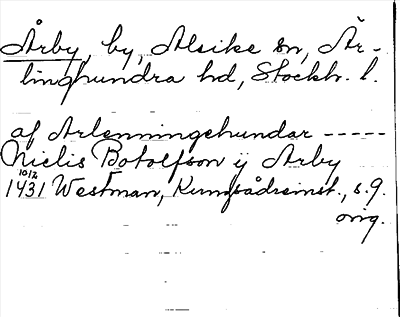 Årby, by, Alsike sn, Är-
linghundra hd, Stockh. l.
af Arlenningehundar -----
Nielis Botolfson ij Arby
10/12
1431 Westman, Kungsådreinst., s. 9.
orig.